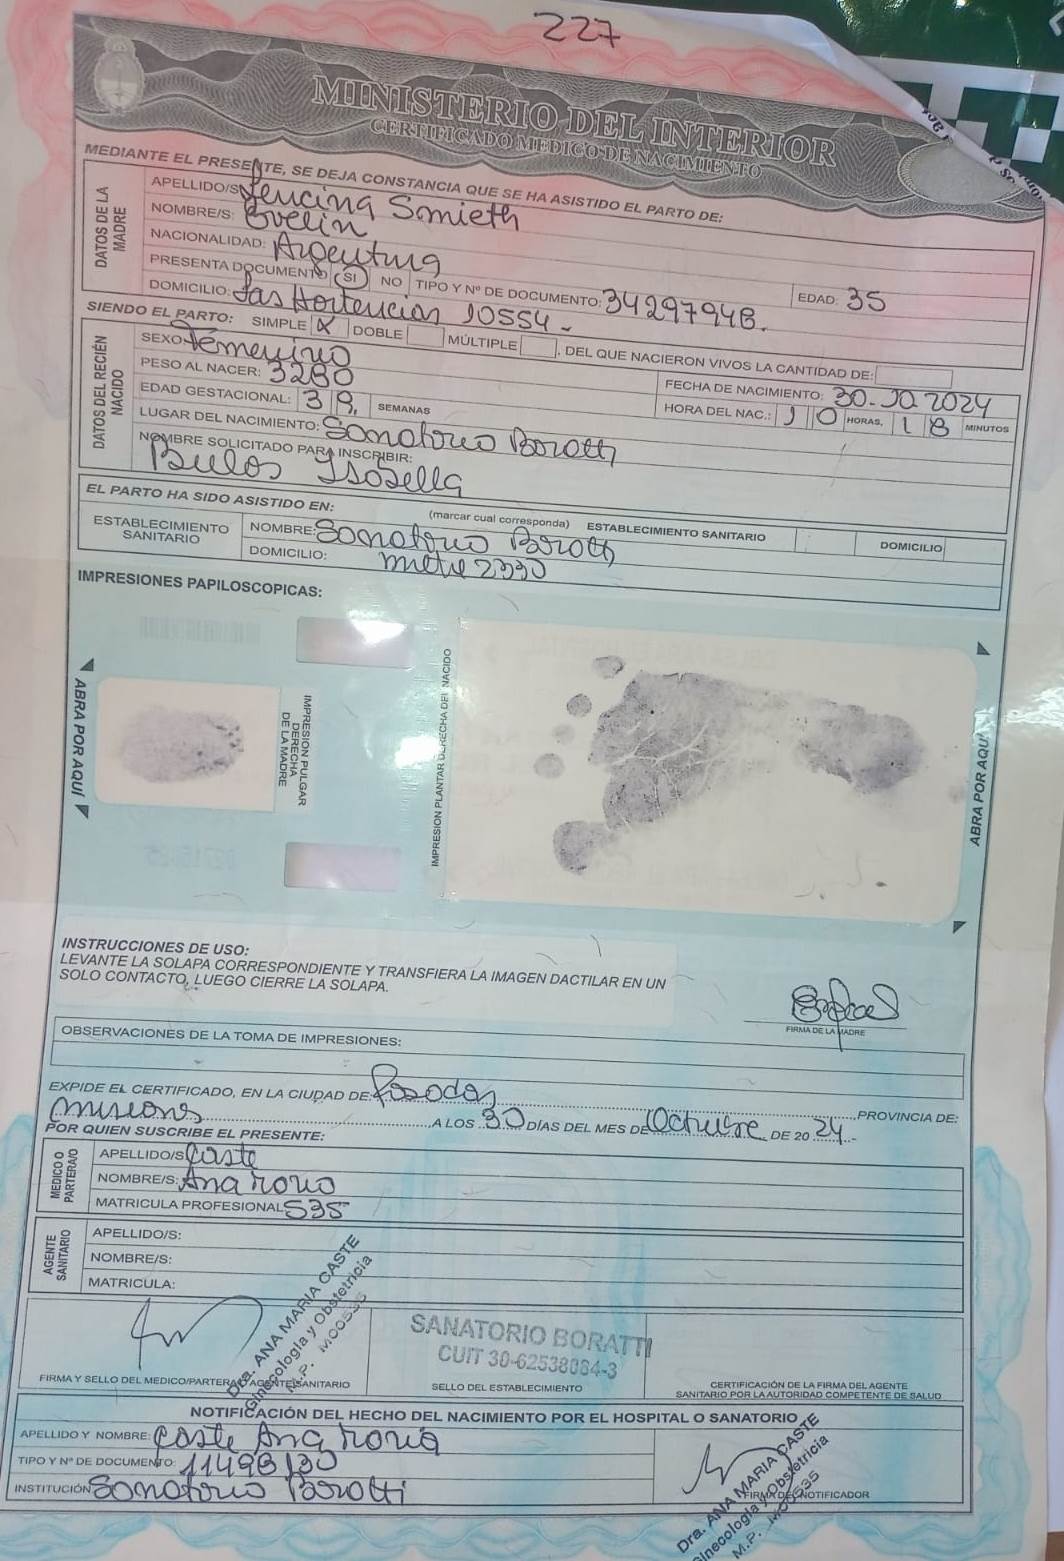 227
MINISTERIO DEL INTERIOR
CERTIFICADO MEDICO DE NACIMIENTO
MEDIANTE EL PRESENTE, SE DEJA CONSTANCIA QUE SE HA ASISTIDO EL PARTO DE:
DATOS DE LA MADRE
APELLIDO/S: Smieth
NOMBRE/S: Evelin
NACIONALIDAD: Argentina
PRESENTA DOCUMENTO SI NO TIPO Y Nº DE DOCUMENTO: 34297948. EDAD: 35
DOMICILIO: Las Hortencias 10554.-
SIENDO EL PARTO: SIMPLE X DOBLE MÚLTIPLE , DEL QUE NACIERON VIVOS LA CANTIDAD DE:
DATOS DEL RECIÉN NACIDO
SEXO: Femenino
PESO AL NACER: 3280 FECHA DE NACIMIENTO: 30-10-2024
EDAD GESTACIONAL: 39. SEMANAS HORA DEL NAC.: 10 HORAS, 18 MINUTOS
LUGAR DEL NACIMIENTO: Sanatorio Boratti
NOMBRE SOLICITADO PARA INSCRIBIR:
Bulos Isabella
EL PARTO HA SIDO ASISTIDO EN: (marcar cual corresponda) ESTABLECIMIENTO SANITARIO DOMICILIO
ESTABLECIMIENTO SANITARIO
NOMBRE: Sanatorio Boratti
DOMICILIO: Mitre 2330
IMPRESIONES PAPILOSCOPICAS:
ABRA POR AQUÍ
IMPRESION PULGAR DERECHA DE LA MADRE
IMPRESION PLANTAR DERECHA DEL NACIDO
ABRA POR AQUÍ
INSTRUCCIONES DE USO:
LEVANTE LA SOLAPA CORRESPONDIENTE Y TRANSFIERA LA IMAGEN DACTILAR EN UN
SOLO CONTACTO, LUEGO CIERRE LA SOLAPA.
FIRMA DE LA MADRE
OBSERVACIONES DE LA TOMA DE IMPRESIONES:
EXPIDE EL CERTIFICADO, EN LA CIUDAD DE: Posadas PROVINCIA DE:
Misiones A LOS 30 DÍAS DEL MES DE Octubre DE 20 24.-
POR QUIEN SUSCRIBE EL PRESENTE:
MEDICO O PARTERA/O
APELLIDO/S: Caste
NOMBRE/S: Ana Maria
MATRICULA PROFESIONAL: 535
AGENTE SANITARIO
APELLIDO/S:
NOMBRE/S:
MATRICULA:
Dra. ANA MARIA CASTE
Ginecología y Obstetricia
M.P. M00535
SANATORIO BORATTI
CUIT 30-62538084-3
FIRMA Y SELLO DEL MEDICO/PARTERA O AGENTE SANITARIO
SELLO DEL ESTABLECIMIENTO
CERTIFICACIÓN DE LA FIRMA DEL AGENTE
SANITARIO POR LA AUTORIDAD COMPETENTE DE SALUD
NOTIFICACIÓN DEL HECHO DEL NACIMIENTO POR EL HOSPITAL O SANATORIO
APELLIDO Y NOMBRE: Caste Ana Maria
TIPO Y Nº DE DOCUMENTO: 11498130
INSTITUCIÓN Sanatorio Boratti
FIRMA DEL NOTIFICADOR
Dra. ANA MARIA CASTE
Ginecología y Obstetricia
M.P. M00535